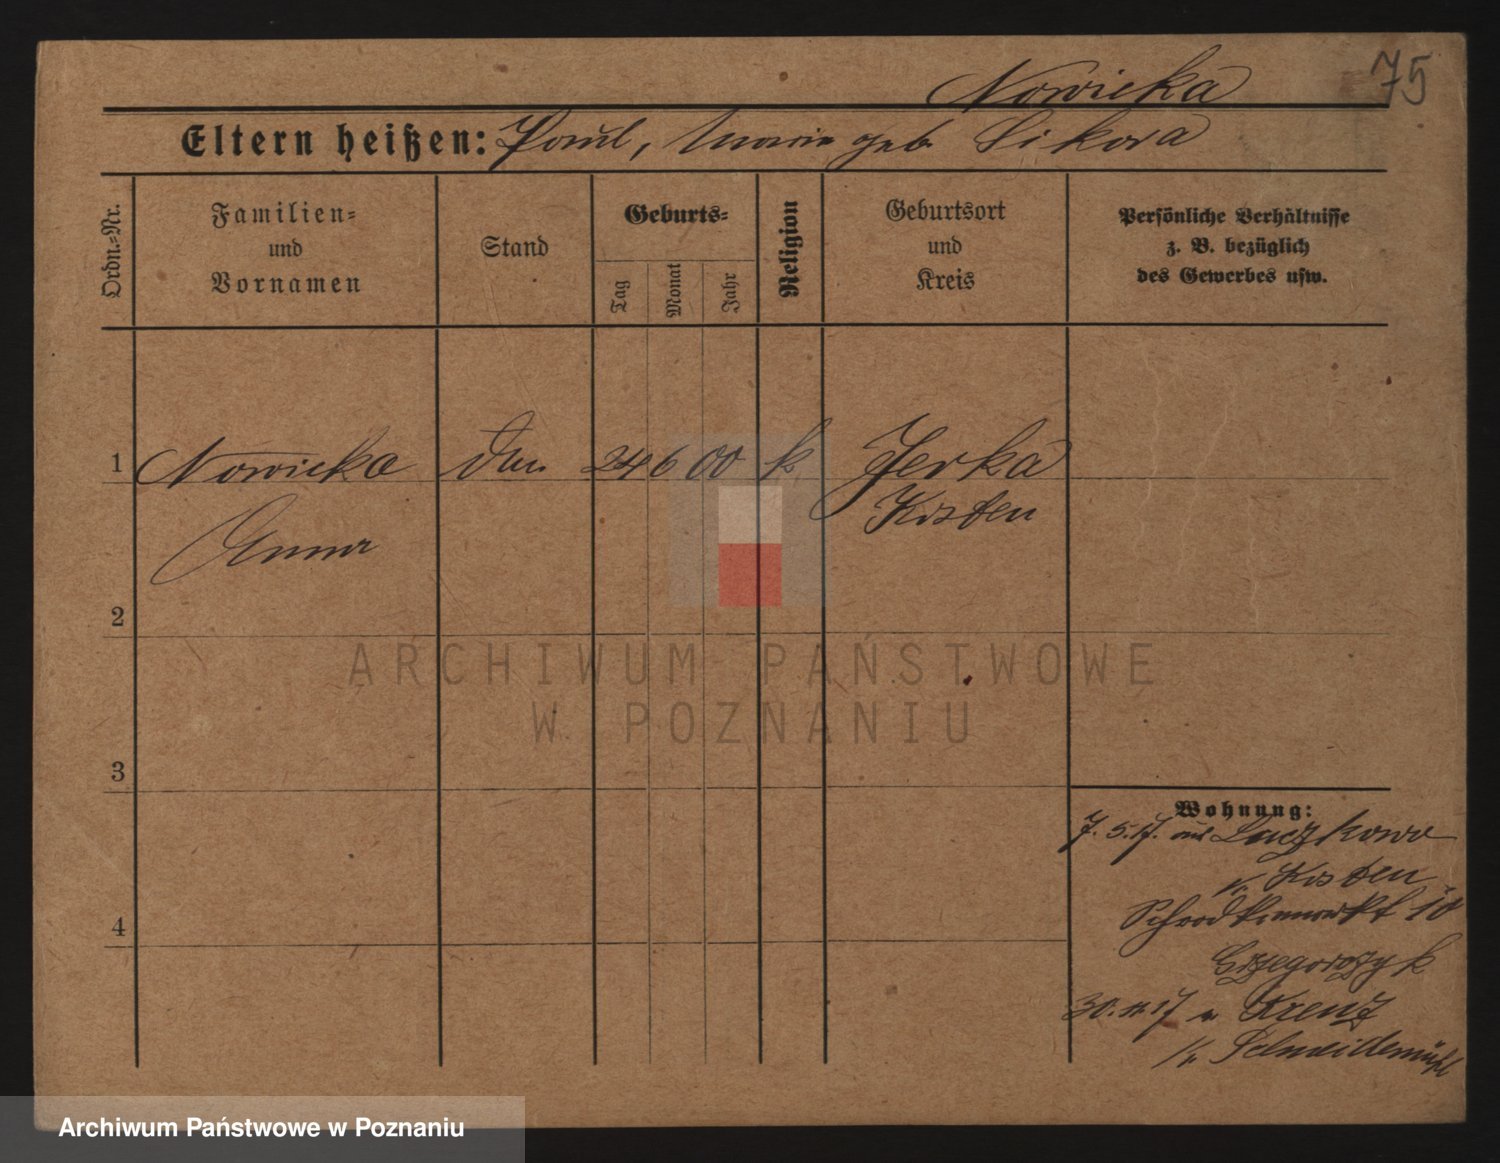 75
Nowicka
Eltern heißen: Paul, Maria geb. Sikora
Ordn.-Nr.
Familien-
und
Vornamen
Stand
Geburts-
Tag
Monat
Jahr
Religion
Geburtsort
und
Kreis
Persönliche Verhältnisse
z. B. bezüglich
des Gewerbes usw.
1 Nowicka 24 6 00 k Jerka
Kosten
Anna
2
3
4
Wohnung:
7. 5. 17. aus Luczkowo
Kr. Kosten
Schrodkamarkt 10
Grzegorczyk
30. 11. 17 n Kreuz
Kr. Schneidemühl
ARCHIWUM PAŃSTWOWE
W POZNANIU
Archiwum Państwowe w Poznaniu